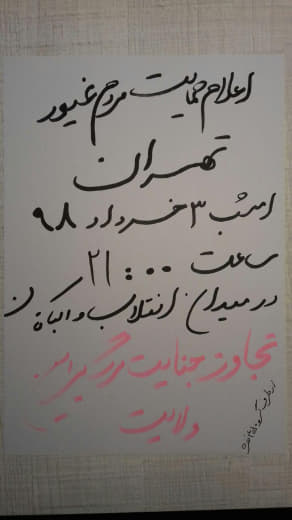 اعلام حمایت مردم غیور
تهران
امشب ۳ خرداد ۹۸
ساعت ۲۱:۰۰
در میدان انقلاب و
تجاوز جنایت مرگ بر این
ولایت
از طرف